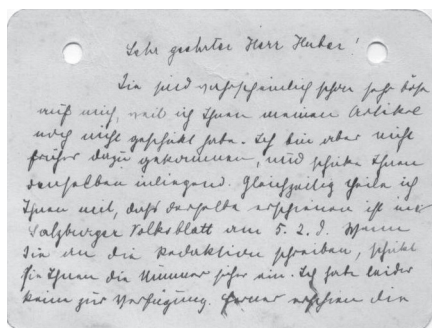 Sehr geehrter Herr Huber!
Sie sind wahrscheinlich schon sehr böse
auf mich, weil ich Ihnen meinen Artikel
noch nicht geschickt habe. Ich bin aber nicht
früher dazu gekommen, und schicke Ihnen
denselben inliegend. Gleichzeitig theile ich
Ihnen mit, daß derselbe erschienen ist im
Salzburger Volksblatt am 5. 2. J. Wenn
Sie an die Redaktion schreiben, schickt
sie Ihnen die Nummer sicher ein. Ich habe leider
keine zur Verfügung. Ferner erschien die